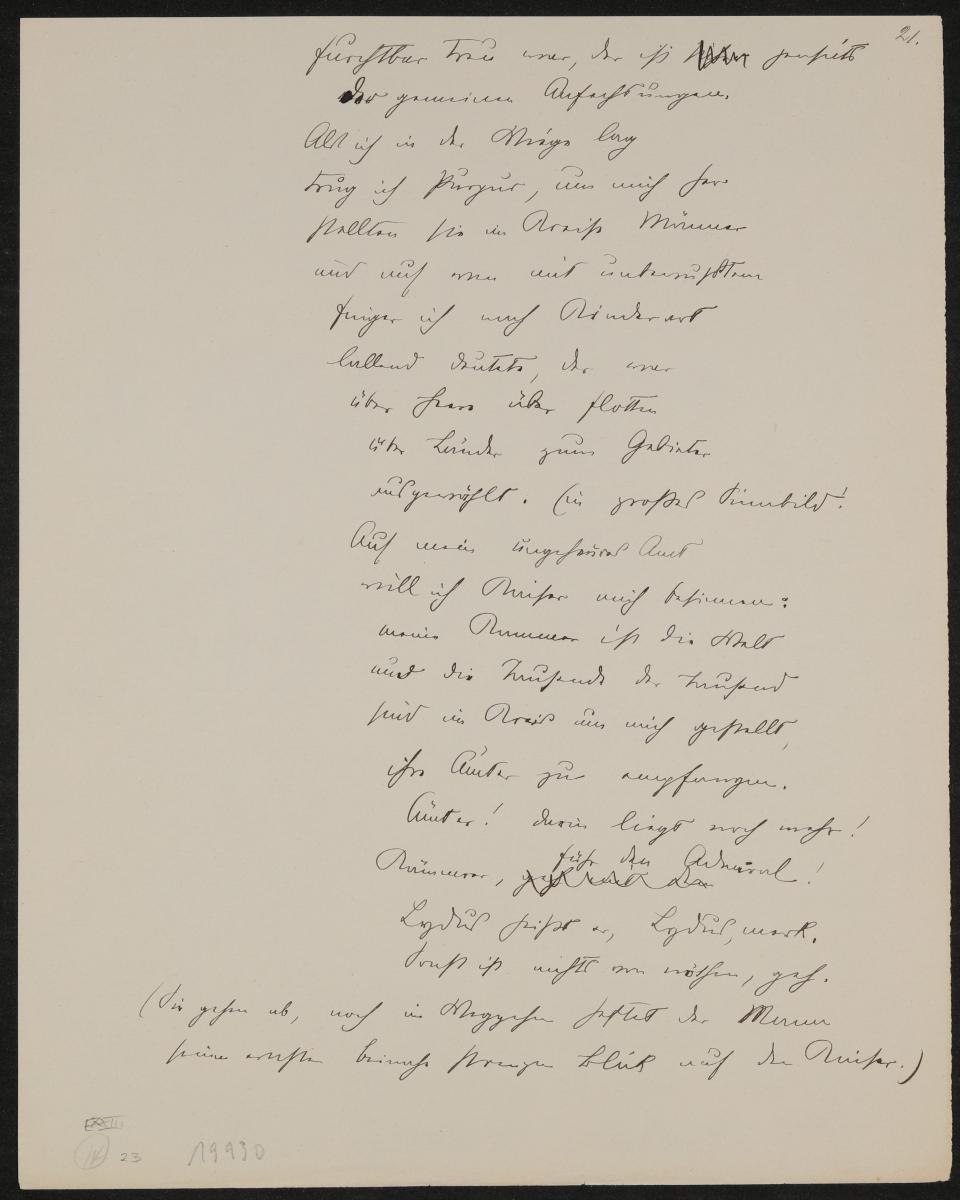 21.
furchtbar treu war, der ist jenseits
der gemeinen Anfechtungen.
Als ich in der Wiege lag
trug ich Purpur, um mich her
stellten sie im Kreise Männer
und auf wen mit unbewusstem
Finger ich nach Kinderart
lallend deutete, der war
über Heere über Flotten
über Länder zum Gebieter
ausgewählt. Ein großes Sinnbild!
Auf mein ungeheures Amt
will ich Kaiser mich besinnen:
meine Kammer ist die Welt
und die Tausende der Tausend
sind im Kreis um mich gestellt,
ihre Ämter zu empfangen.
Ämter! darin liegt noch mehr!
Kämmerer, führ den Admiral!
Lydus heißt er, Lydus, merk.
Sonst ist nichts von nöthen, geh.
(Sie gehen ab, noch im Weggehen heftet der Mann
seinen ernsten beinahe strengen Blick auf den Kaiser.)
23
19930